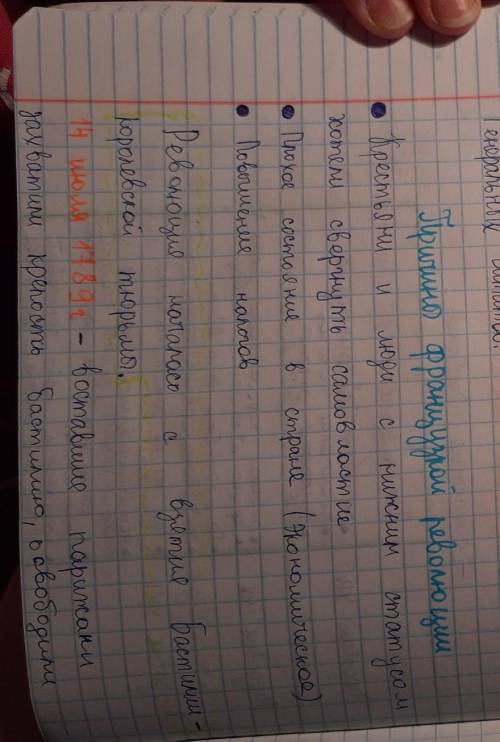 Генеральных штатов.
Причины французкой революции
• Крестьяни и люди с нижним статусом
хотели свергнуть самовластие
• Плохое состояние в стране (экономическое)
• Повышение налогов
Революция началась с взятия бастилии -
королевской тюрьмы.
14 июля 1789г - воставшие парижани
захватили крепость бастилию, освободили